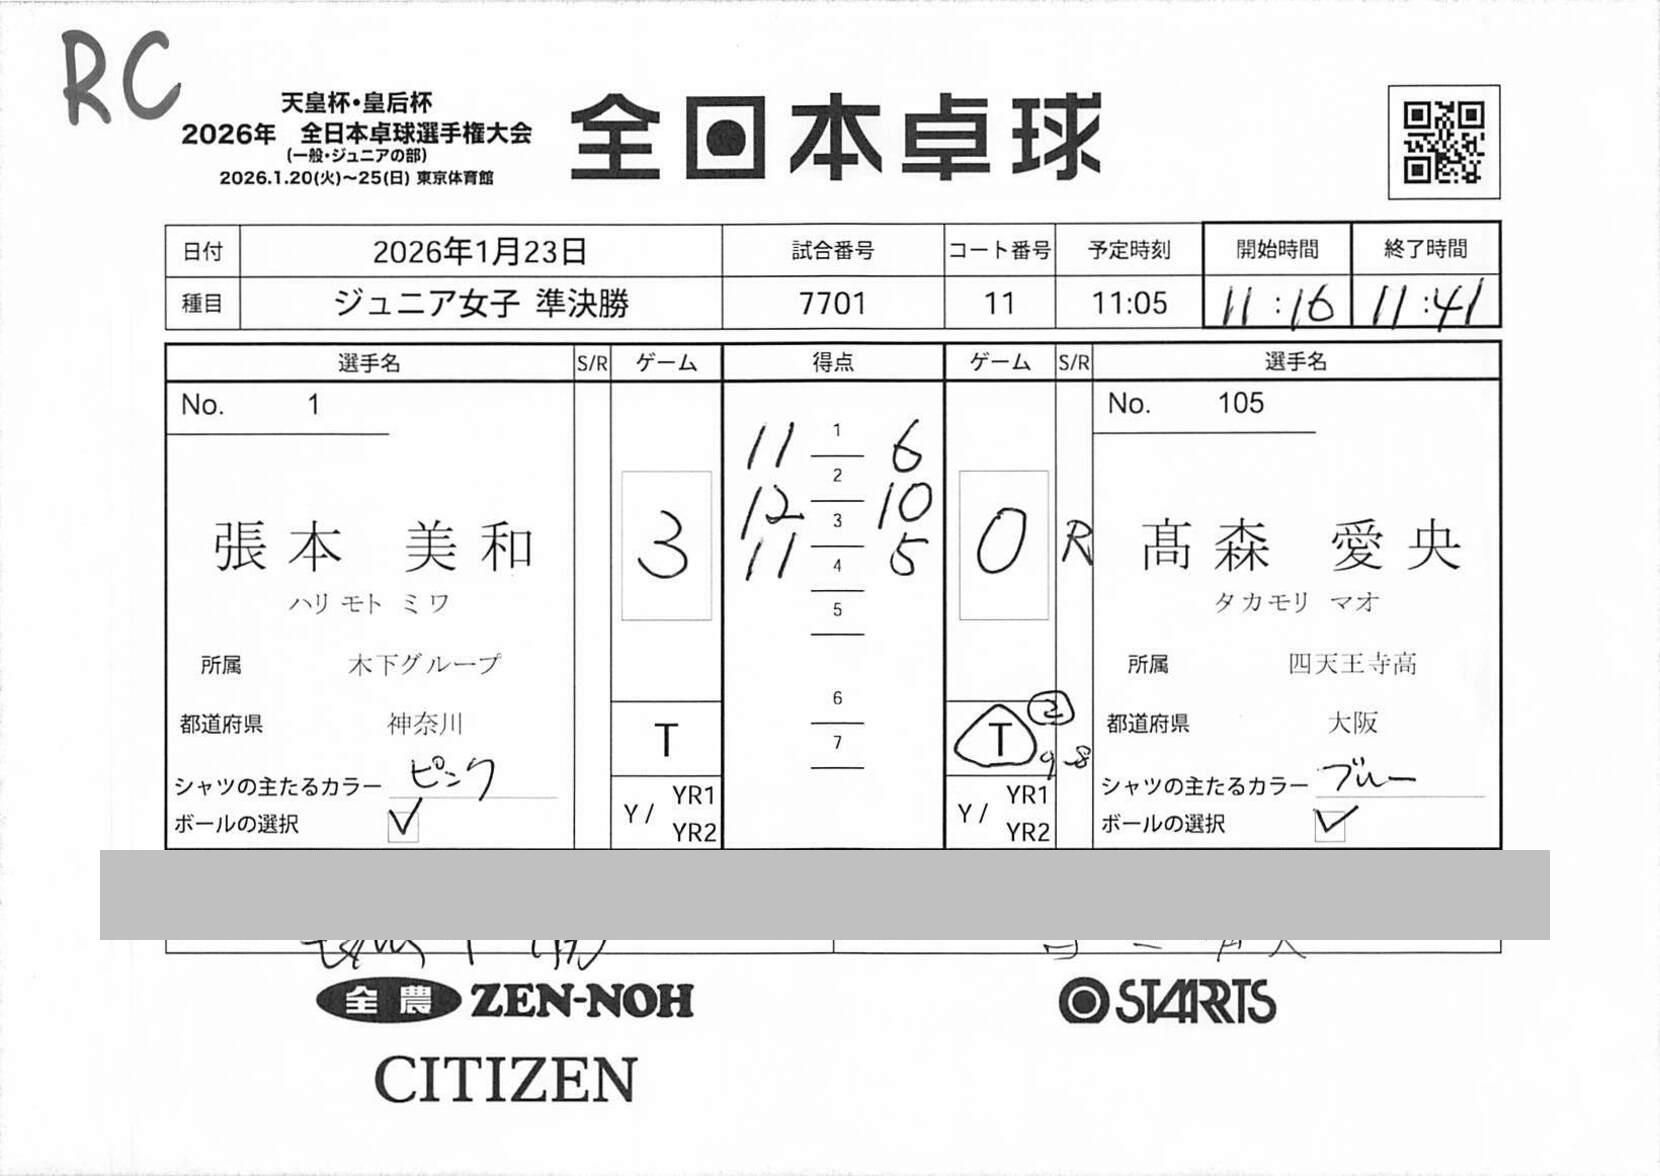 RC
天皇杯・皇后杯
2026年 全日本卓球選手権大会
(一般・ジュニアの部)
2026.1.20(火)～25(日) 東京体育館
全日本卓球
日付 2026年1月23日 試合番号 コート番号 予定時刻 開始時間 終了時間
種目 ジュニア女子 準決勝 7701 11 11:05 11:16 11:41
選手名 S/R ゲーム 得点 ゲーム S/R 選手名
No. 1
No. 105
11 1 6
2
12 3 10
11 4 5
5
6
7
張本 美和 3 0 R 髙森 愛央
ハリモト ミワ
タカモリ マオ
所属 木下グループ
所属 四天王寺高
都道府県 神奈川 T T ② 9-8 都道府県 大阪
シャツの主たるカラー ピンク
シャツの主たるカラー ブルー
ボールの選択 ✓ Y / YR1 YR2
Y / YR1 YR2 ボールの選択 ✓
全農 ZEN-NOH
STARTS
CITIZEN